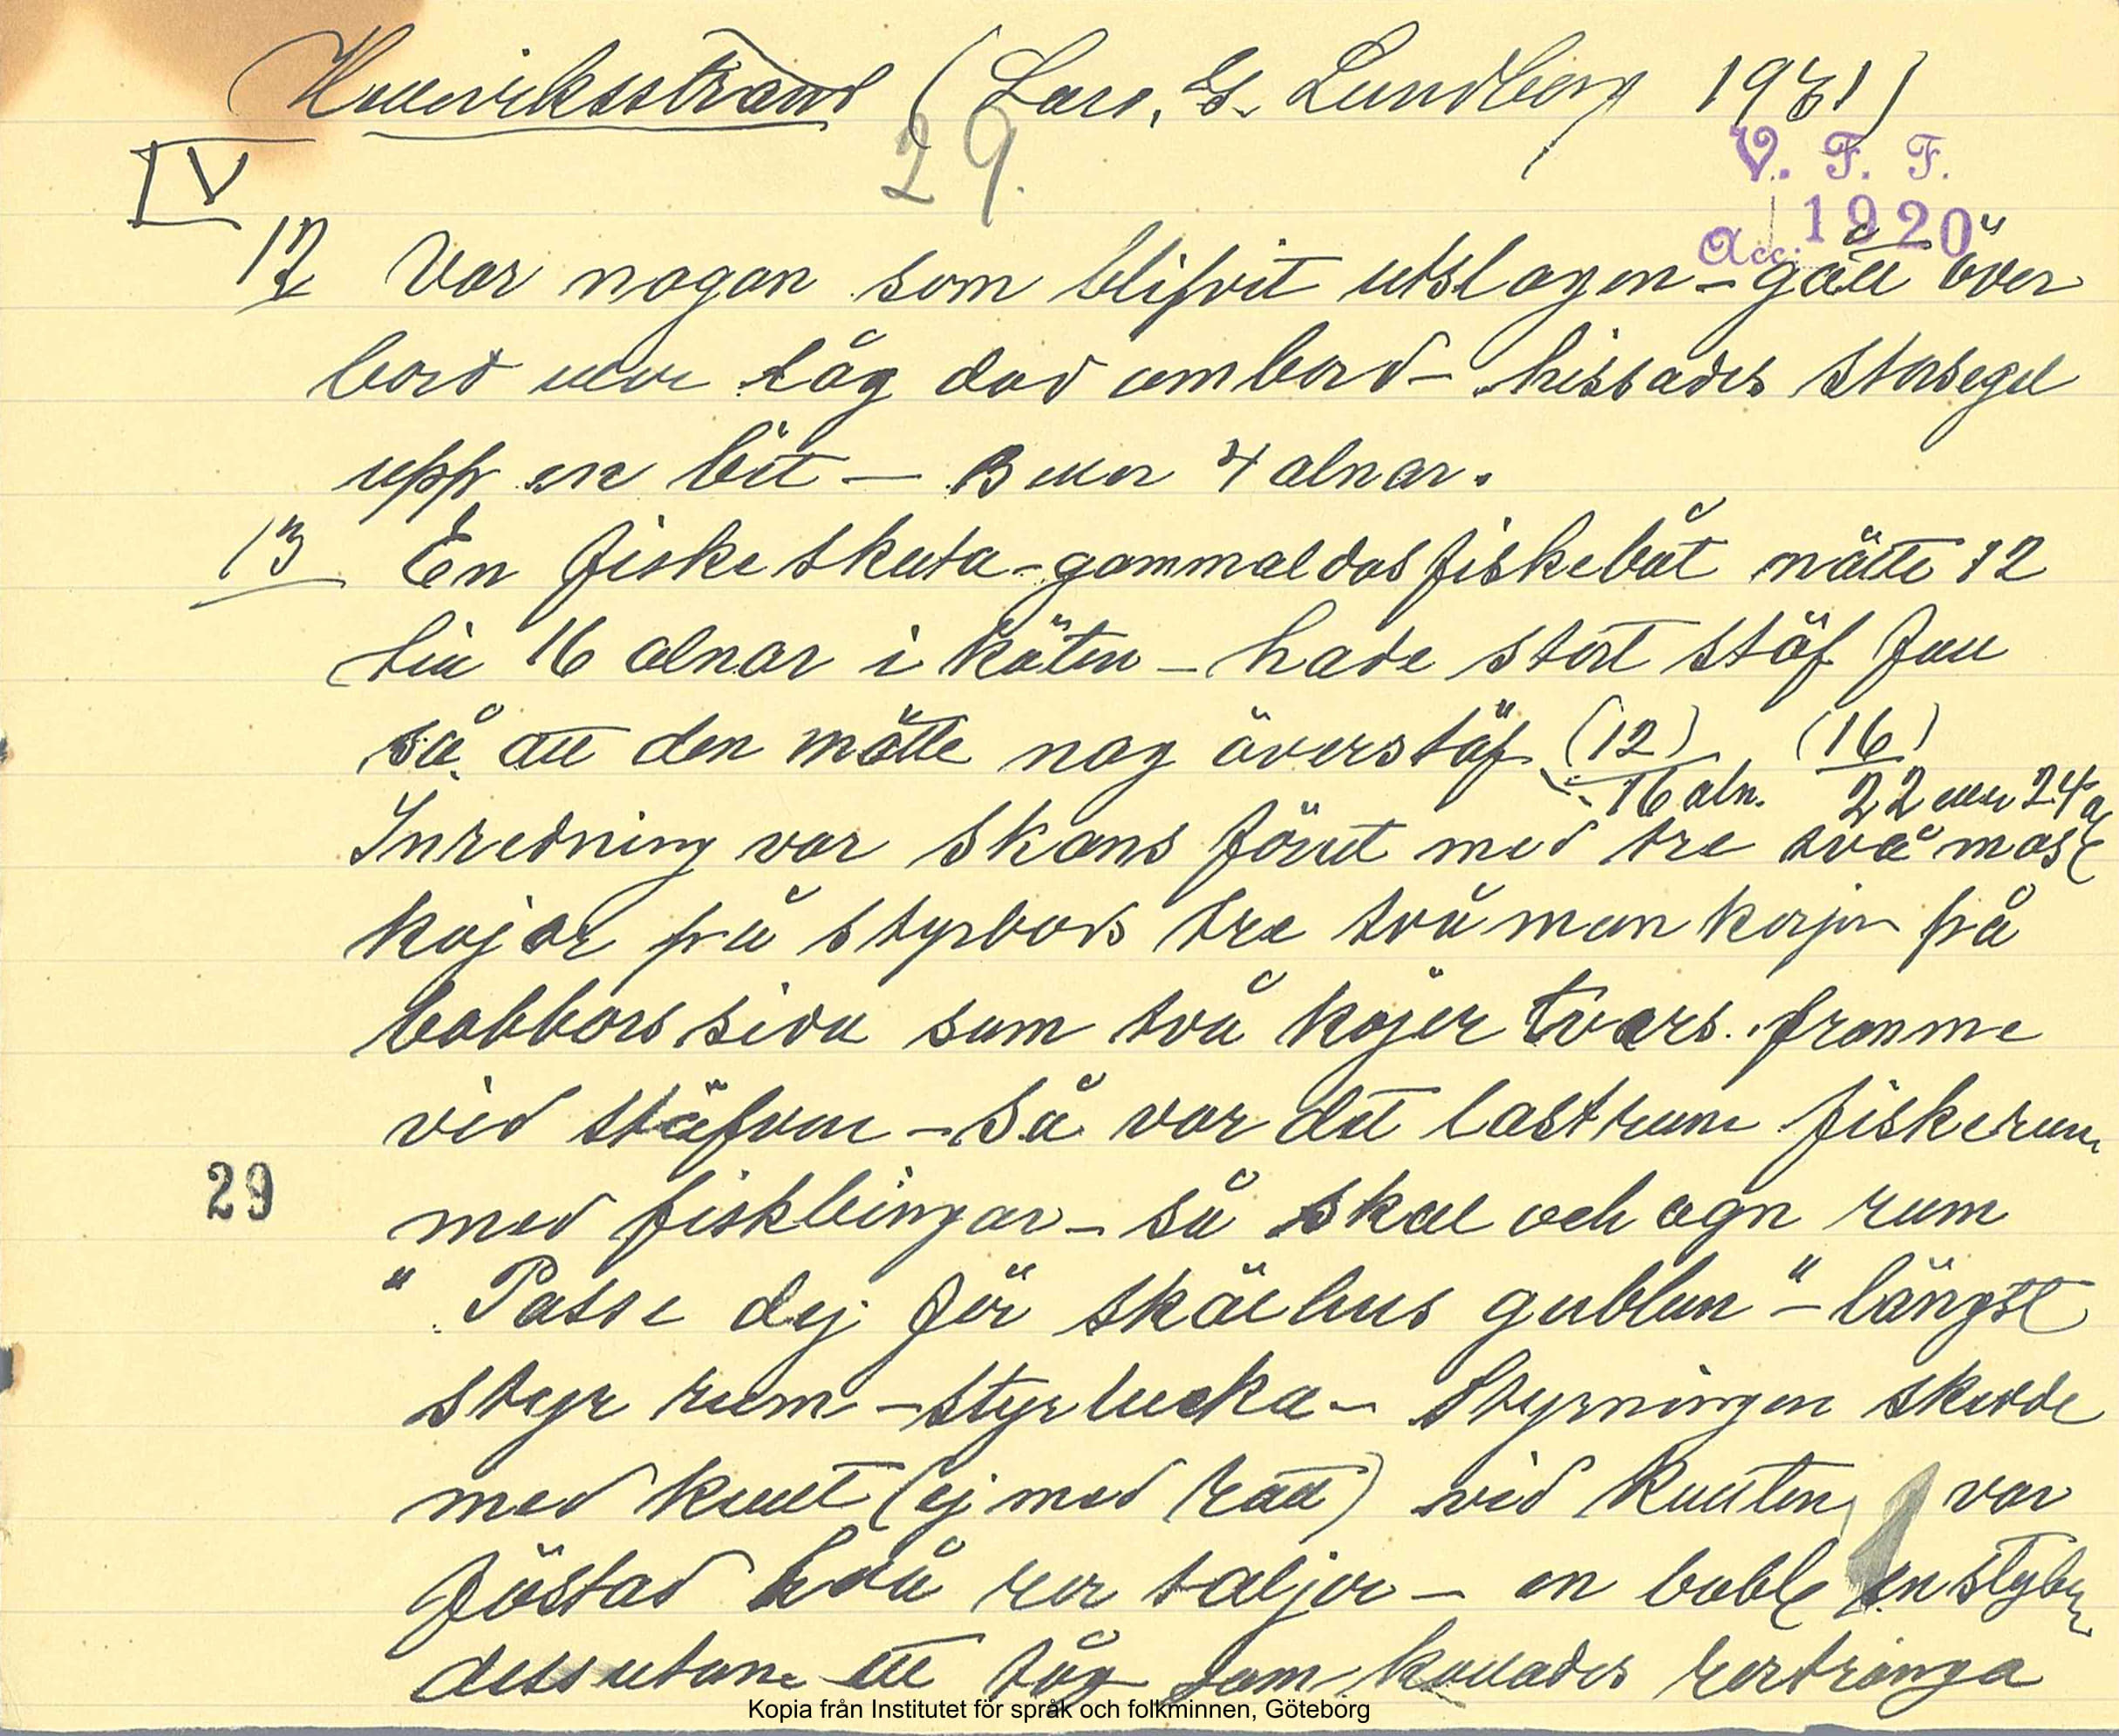 Hällevikstrand (Lars, G. Lundberg 1931)
29.
V. F. F.
Acc. 1920
IV
12 Var nogan som blifvit utslagen - gått över
bord eller låg död ombord - hissades storsegel
upp en bit - 3 eller 4 alnar.
13 En fiske skuta - gammaldas fiskebåt mätte 12
till 16 alnar i kölen - hade stort stäf fall
så att den mätte nog överstäf (12) (16)
16 aln. 22 eller 24 a
Inredning var skans förut med tre två mas
kojor på styrbors tre två man kojor på
babbors sida sam två kojer tvärs framme
vid stäfven - så var det lastrum fiskerum
med fiskbingar - så skal och agn rum
29
" Passe dej för skälhus gubben " - längst
styr rum - styrlucka - Styrningen skedde
med kult (ej med ratt) vid kulten var
föstad två rer taljor - en babb en styb
dessutom ett tåg som kallades rortränga
Kopia från Institutet för språk och folkminnen, Göteborg